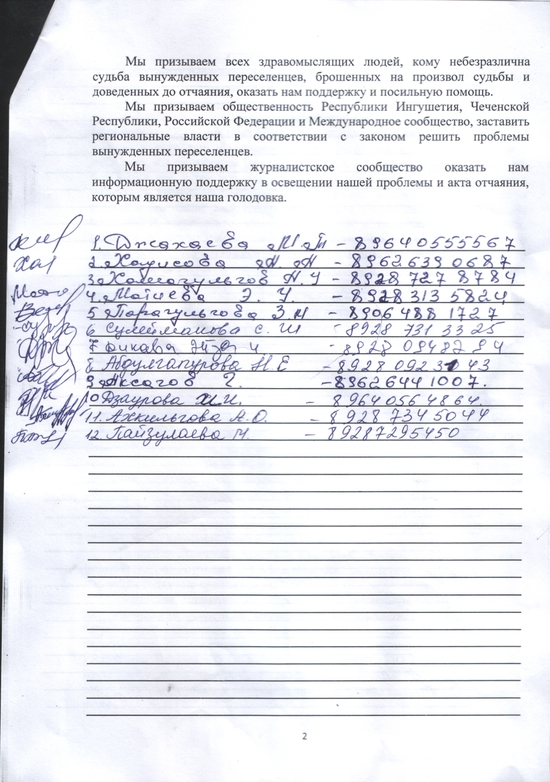 Мы призываем всех здравомыслящих людей, кому небезразлична
судьба вынужденных переселенцев, брошенных на произвол судьбы и
доведенных до отчаяния, оказать нам поддержку и посильную помощь.
Мы призываем общественность Республики Ингушетия, Чеченской
Республики, Российской Федерации и Международное сообщество, заставить
региональные власти в соответствии с законом решить проблемы
вынужденных переселенцев.
Мы призываем журналистское сообщество оказать нам
информационную поддержку в освещении нашей проблемы и акта отчаяния,
которым является наша голодовка.
1. Джахаева М - 89640555567
2. - 89626390687
3. А. У - 8928 727 8784
4. Мотиева Э. У - 8928 313 5824
5. Парагульгова З. М - 8906 488 1727
6 Сулейманова С. Ш - 8928 731 33 25
7
8 Абдулгапурова Н Е - 8928 0923 43
9. Аксагов - 89626441007.
10 Дзаурова Х.И. - 89640564864.
11. Ахкильгова А. О. - 8 928 7345044
12 Гайзулаева М - 89287295450
2